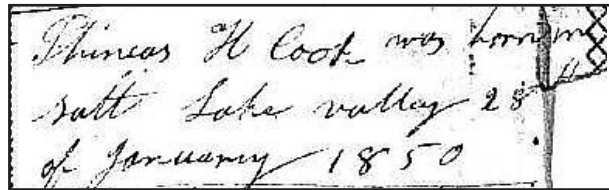 Phineas H Cook was born in
Salt Lake valley 28th
of January 1850